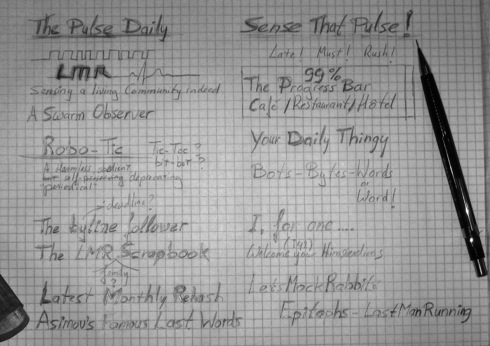 The Pulse Daily
LMR
Sensing a living Community indeed
A Swarm Observer
Robo-Tic
Tic-Toc ?
bit-bot ?
A Harmless
deprecating
periodical!
deadline?
The byline follower
The LMR Scrapbook
family
?
Latest Monthly Rehash
Asimov's Famous Last Words
Sense That Pulse!
Late! Must! Rush!
99%
The Progress Bar
Café/Restaurant/Hotel
Your Daily Thingy
Bots-Bytes-Words
or
Word!
I, for one....
Welcome your
Let's Mock Rabbits
Epitaphs-LastManRunning